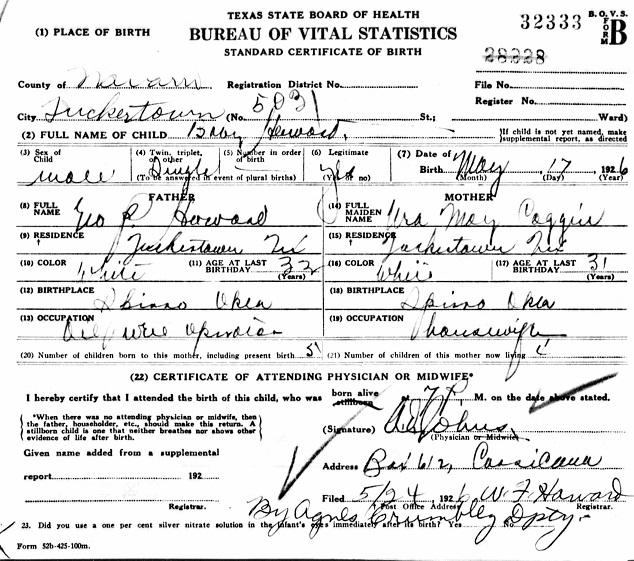 TEXAS STATE BOARD OF HEALTH
BUREAU OF VITAL STATISTICS
STANDARD CERTIFICATE OF BIRTH
32333 B. O. V. S. FORM B
28328
(1) PLACE OF BIRTH
County of Navarro Registration District No. File No.
Register No.
City Tuckertown (No. 5031 St.; Ward)
(2) FULL NAME OF CHILD Baby Howard. If child is not yet named, make supplemental report, as directed
(3) Sex of Child male (4) Twin, triplet, or other Single (5) Number in order of birth (6) Legitimate (Yes or no) (7) Date of Birth May 17 1926
(To be answered in event of plural births) (Month) (Day) (Year)
FATHER MOTHER
(8) FULL NAME Geo P. Howard (14) FULL MAIDEN NAME Ora May Coggin
(9) RESIDENCE Tuckertown Tex (15) RESIDENCE Tuckertown Tex
(10) COLOR White (11) AGE AT LAST BIRTHDAY 32 (Years) (16) COLOR White (17) AGE AT LAST BIRTHDAY 31 (Years)
(12) BIRTHPLACE Spiro Okla (18) BIRTHPLACE Spiro Okla
(13) OCCUPATION Oil Well (19) OCCUPATION housewife
(20) Number of children born to this mother, including present birth 5 (21) Number of children of this mother now living 4
(22) CERTIFICATE OF ATTENDING PHYSICIAN OR MIDWIFE*
I hereby certify that I attended the birth of this child, who was born alive stillborn at 7 P. M. on the date above stated.
*When there was no attending physician or midwife, then the father, householder, etc., should make this return. A stillborn child is one that neither breathes nor shows other evidence of life after birth.
(Signature)
(Physician or Midwife)
Given name added from a supplemental
report 192
Address Box 612, Corsicana
Filed 5/24, 1926 W. F. Howard
Registrar. Post Office Address Registrar.
By Agnes Crumbley Dpty.
23. Did you use a one per cent silver nitrate solution in the infant's eyes immediately after its birth? Yes No
Form 52b-425-100m.